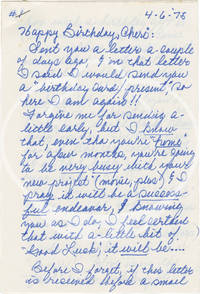 #1
4-6-78
Happy Birthday, Cheri:
Sent you a letter a couple
of days ago, & in that letter
I said I would send you
a "birthday card/present," so
here I am again!!
Forgive me for sending a
little early, but I know
that, even tho you're "home"
for a few months, you're going
to be very busy with your
new project (movie, plus) & I
pray it will be a success-
ful endeavor, & knowing
you as I do, I feel certain
that with a little bit of
Good Luck, it will be....
Before I forget, if this letter
is received before a small